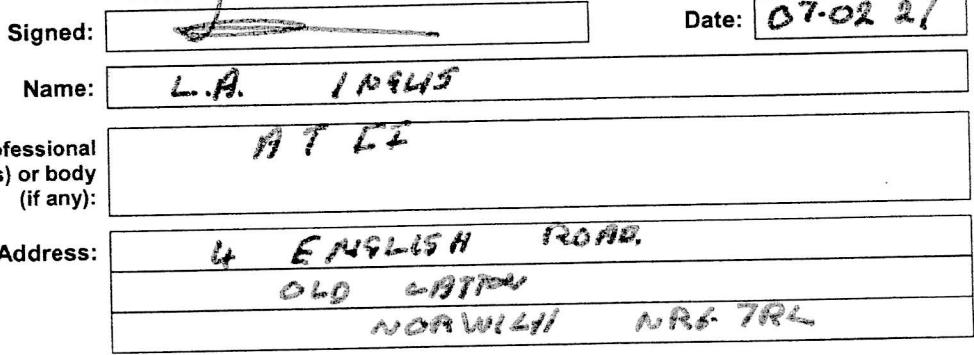 Signed: Date: 07.02 21
Name: L.A. INGLIS
ofessional
s) or body
(if any):
A T II
Address: 4 ENGLISH ROAD.
OLD CATTON
NORWICH NR6 7RL